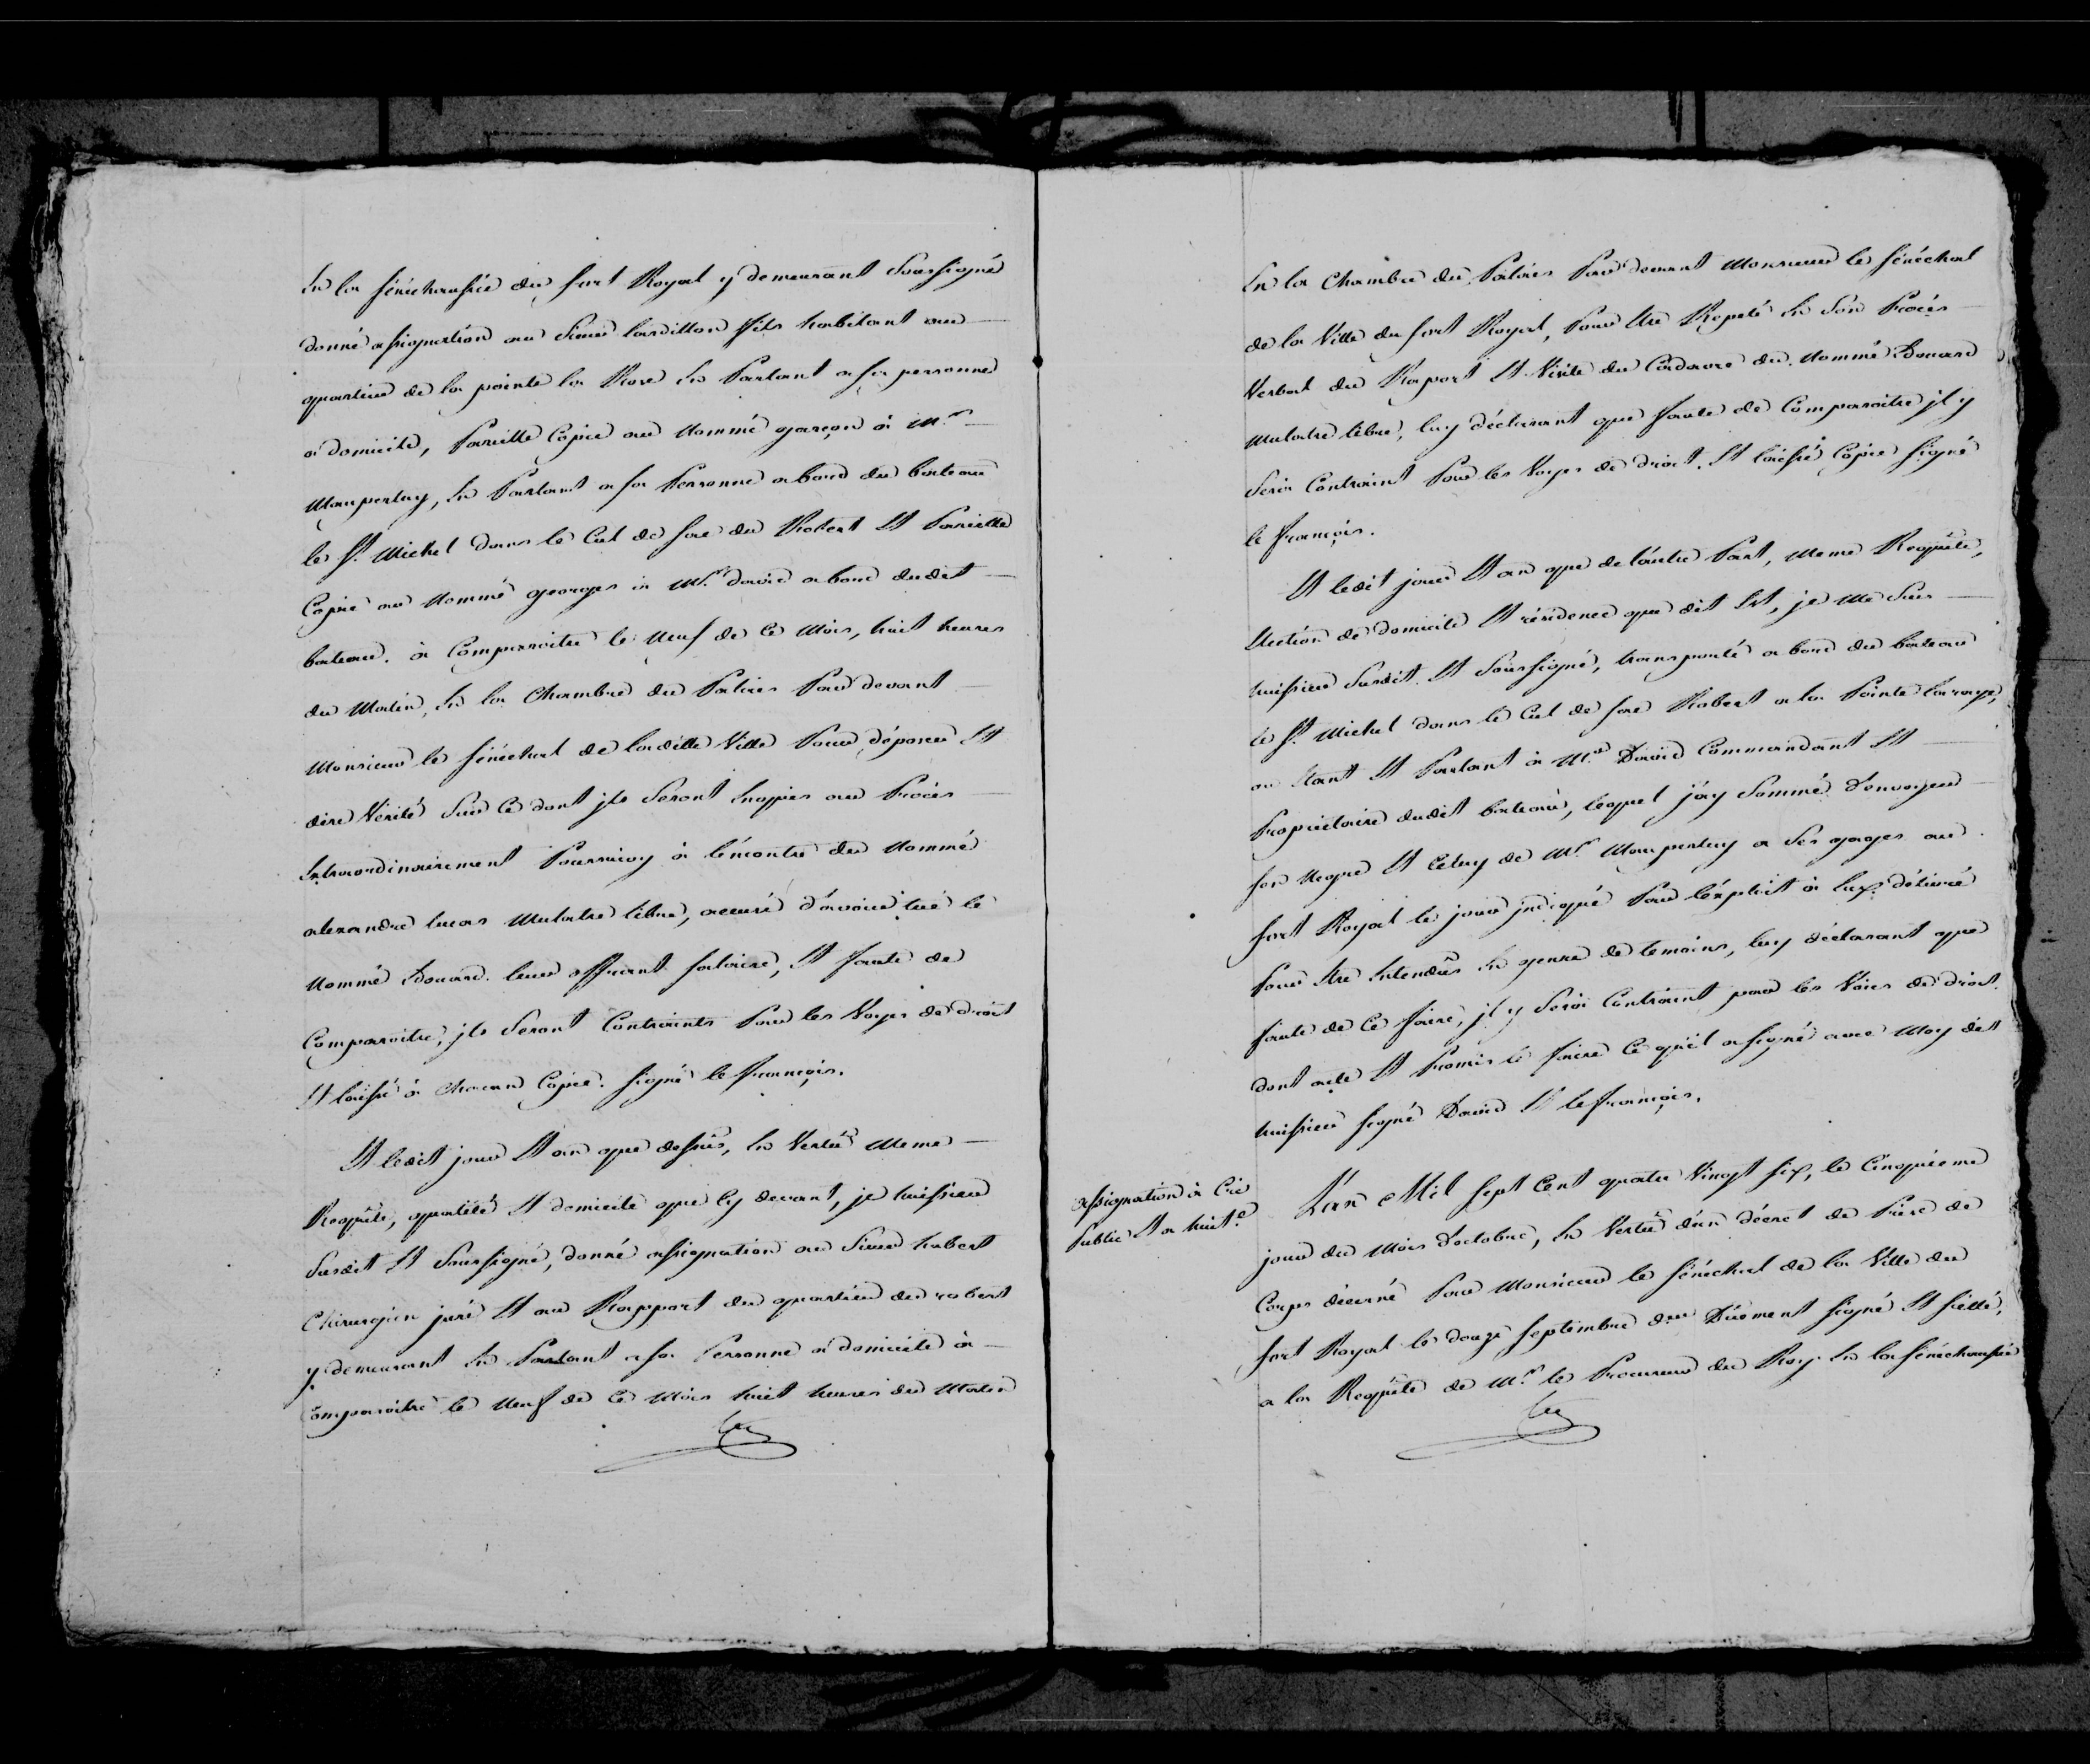 En la sénéchaussée du fort Royal y demeurant Soussigné
donné assignation au Sieur lardillon fils habitant au
quartier de la pointe la Rose En Parlant a sa personne
a domicile, Pareille Copie au Nommé garçon à Mr.
Maupertuy, En Parlant a sa Personne abord du bateau
le St. Michel dans le Cul de sac du Robert Et Pareille
Copie au Nommé georges à Mr. david abord dudit
bateau. à Comparoitre le Neuf de ce Mois, huit heures
du Matin, En la Chambre du Palais Pardevant
Monsieur le sénéchal de laditte Ville Pour déposer Et
dire Vérité Sur Ce dont jls Seront Enquis au Procès
Extraordinairement Poursuivy à l'encontre du Nommé
alexandre lucas Mulatre libre, accusé d'avoir tué le
Nommé Edouard. leur offrant salaire, Et faute de
Comparoitre, jls Seront Contraints Par les Voyes de droit
Et laissé à chacun Copie. signé le françois.
Et ledit jour Et an que dessus, En Vertu Meme
Requête, qualité Et domicile que Cy devant, je huissier
Susdit Et Soussigné, donné assignation au Sieur hubert
Chirurgien juré Et au Rapport du quartier du robert
y demeurant En Parlant a sa Personne a domicile à
Comparoitre le Neuf de ce Mois huit heures du Matin
En la Chambre du Palais Pardevant Monsieur le sénéchal
de la Ville du fort Royal, Pour Etre Repeté En Son Procès
Verbal du Raport Et Visite du Cadavre du Nommé Edouard
Mulatre libre, luy déclarant que faute de Comparoitre jl y
Sera Contraint Par les Voyes de droit. Et laissé Copie signé
le françois.
Et ledit jour Et an que de l'autre Part, Meme Requête,
Election de domicile Et résidence que dit Est, je Me Suis
huissier Susdit Et Soussigné, transporté abord du bateau
le St. Michel dans le Cul de sac Robert a la Pointe larouge,
ou Etant Et Parlant à Mr. David Commandant Et
Propriétaire dudit bateau, lequel j'ay Sommé d'envoyer
son Negre Et Celuy de Mr. Maupertuy a Ses gages au
fort Royal le jour jndiqué Par l'exploit à Eux délivré
Pour Etre Entendus En genre de temoins, luy déclarant que
faute de Ce faire, jl y Sera Contraint par les Voies de droit.
dont acte Et Promis le faire Ce qu'il a signé avec Moy dit
huissier signé David Et le françois.
assignation à Cri
Public Et a huit.e
L'an Mil Sept Cent quatre Vingt six, le Cinquieme
jour du Mois d'octobre, En Vertu d'un décret de Prise de
Corps décerné Par Monsieur le sénéchal de la Ville du
fort Royal le douze septembre d.er Duement signé Et scellé,
a la Requête de Mr. le Procureur du Roy En la sénéchaussée